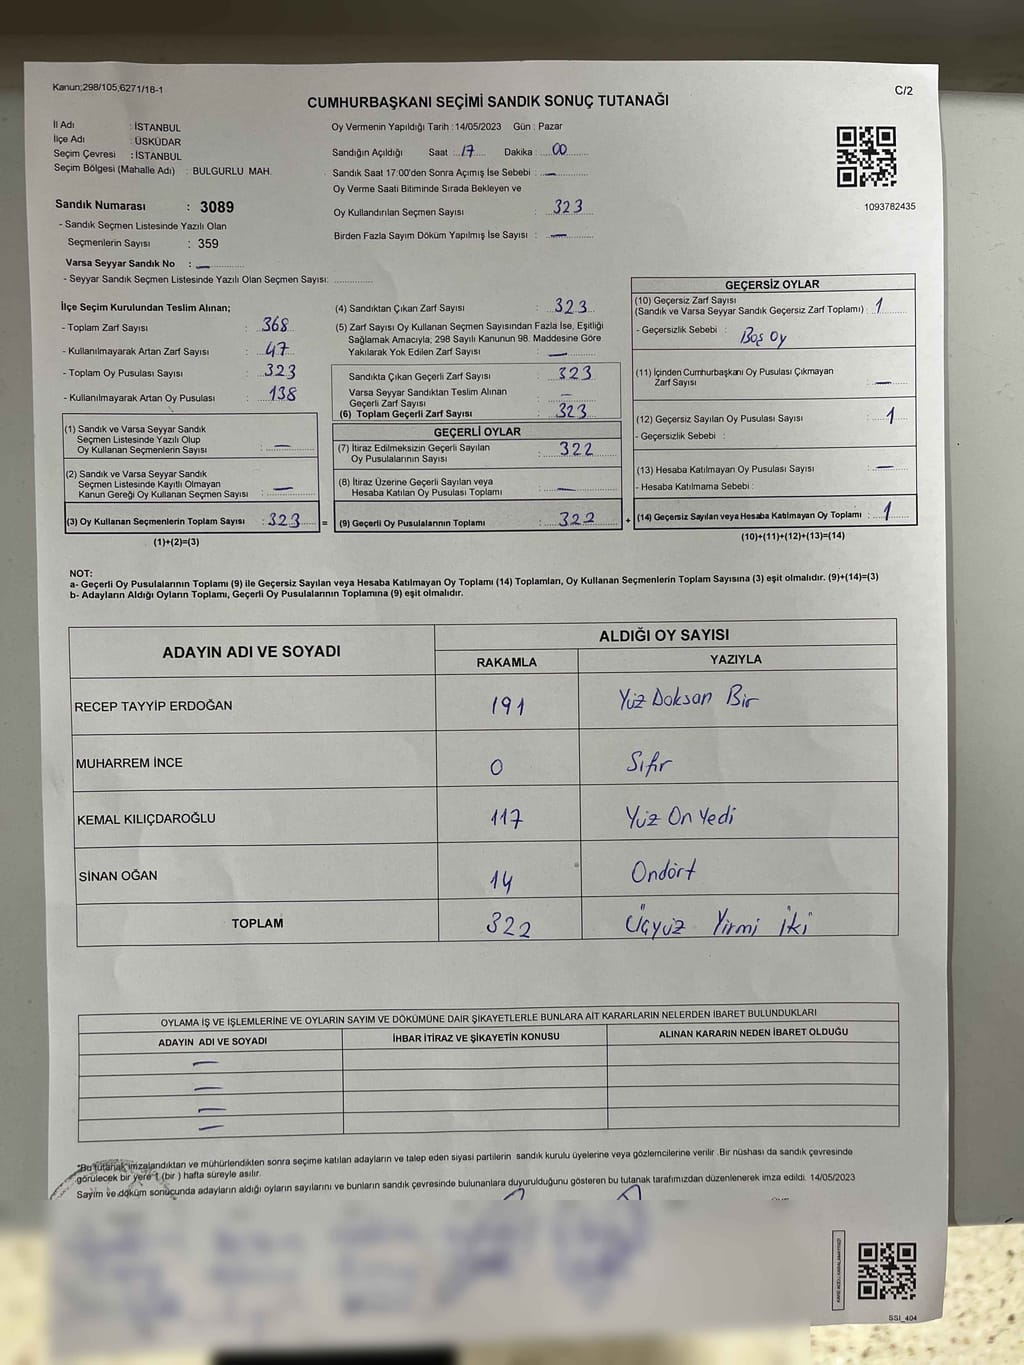 Kanun;298/105,6271/18-1
C/2
CUMHURBAŞKANI SEÇİMİ SANDIK SONUÇ TUTANAĞI
İl Adı : İSTANBUL
İlçe Adı : ÜSKÜDAR
Seçim Çevresi : İSTANBUL
Seçim Bölgesi (Mahalle Adı) : BULGURLU MAH.
Sandık Numarası : 3089
- Sandık Seçmen Listesinde Yazılı Olan
Seçmenlerin Sayısı : 359
Varsa Seyyar Sandık No : —
- Seyyar Sandık Seçmen Listesinde Yazılı Olan Seçmen Sayısı: ..............
Oy Vermenin Yapıldığı Tarih : 14/05/2023 Gün : Pazar
Sandığın Açıldığı Saat : 17 Dakika : 00
Sandık Saat 17:00'den Sonra Açımış İse Sebebi : —
Oy Verme Saati Bitiminde Sırada Bekleyen ve
Oy Kullandırılan Seçmen Sayısı : 323
Birden Fazla Sayım Döküm Yapılmış İse Sayısı : —
1093782435
İlçe Seçim Kurulundan Teslim Alınan;
- Toplam Zarf Sayısı : 368
- Kullanılmayarak Artan Zarf Sayısı : 47
- Toplam Oy Pusulası Sayısı : 323
- Kullanılmayarak Artan Oy Pusulası : 138
(1) Sandık ve Varsa Seyyar Sandık
Seçmen Listesinde Yazılı Olup
Oy Kullanan Seçmenlerin Sayısı : —
(2) Sandık ve Varsa Seyyar Sandık
Seçmen Listesinde Kayıtlı Olmayan
Kanun Gereği Oy Kullanan Seçmen Sayısı : —
(3) Oy Kullanan Seçmenlerin Toplam Sayısı : 323 =
(1)+(2)=(3)
(4) Sandıktan Çıkan Zarf Sayısı : 323
(5) Zarf Sayısı Oy Kullanan Seçmen Sayısından Fazla İse, Eşitliği
Sağlamak Amacıyla; 298 Sayılı Kanunun 98. Maddesine Göre
Yakılarak Yok Edilen Zarf Sayısı : —
Sandıkta Çıkan Geçerli Zarf Sayısı : 323
Varsa Seyyar Sandıktan Teslim Alınan
Geçerli Zarf Sayısı : —
(6) Toplam Geçerli Zarf Sayısı : 323
GEÇERLİ OYLAR
(7) İtiraz Edilmeksizin Geçerli Sayılan
Oy Pusulalarının Sayısı : 322
(8) İtiraz Üzerine Geçerli Sayılan veya
Hesaba Katılan Oy Pusulası Toplamı : —
(9) Geçerli Oy Pusulalarının Toplamı : 322 +
GEÇERSİZ OYLAR
(10) Geçersiz Zarf Sayısı
(Sandık ve Varsa Seyyar Sandık Geçersiz Zarf Toplamı) : 1
- Geçersizlik Sebebi : Boş Oy
(11) İçinden Cumhurbaşkanı Oy Pusulası Çıkmayan
Zarf Sayısı : —
(12) Geçersiz Sayılan Oy Pusulası Sayısı : 1
- Geçersizlik Sebebi :
(13) Hesaba Katılmayan Oy Pusulası Sayısı : —
- Hesaba Katılmama Sebebi :
(14) Geçersiz Sayılan veya Hesaba Katılmayan Oy Toplamı : 1
(10)+(11)+(12)+(13)=(14)
NOT:
a- Geçerli Oy Pusulalarının Toplamı (9) ile Geçersiz Sayılan veya Hesaba Katılmayan Oy Toplamı (14) Toplamları, Oy Kullanan Seçmenlerin Toplam Sayısına (3) eşit olmalıdır. (9)+(14)=(3)
b- Adayların Aldığı Oyların Toplamı, Geçerli Oy Pusulalarının Toplamına (9) eşit olmalıdır.
ADAYIN ADI VE SOYADI ALDIĞI OY SAYISI
RAKAMLA YAZIYLA
RECEP TAYYİP ERDOĞAN 191 Yüz Doksan Bir
MUHARREM İNCE 0 Sıfır
KEMAL KILIÇDAROĞLU 117 Yüz On Yedi
SİNAN OĞAN 14 Ondört
TOPLAM 322 Üçyüz Yirmi İki
OYLAMA İŞ VE İŞLEMLERİNE VE OYLARIN SAYIM VE DÖKÜMÜNE DAİR ŞİKAYETLERLE BUNLARA AİT KARARLARIN NELERDEN İBARET BULUNDUKLARI
ADAYIN ADI VE SOYADI İHBAR İTİRAZ VE ŞİKAYETİN KONUSU ALINAN KARARIN NEDEN İBARET OLDUĞU
—
—
—
—
"Bu tutanak imzalandıktan ve mühürlendikten sonra seçime katılan adayların ve talep eden siyasi partilerin sandık kurulu üyelerine veya gözlemcilerine verilir .Bir nüshası da sandık çevresinde
görülecek bir yere 1 (bir ) hafta süreyle asılır.
Sayım ve döküm sonucunda adayların aldığı oyların sayılarını ve bunların sandık çevresinde bulunanlara duyurulduğunu gösteren bu tutanak tarafımızdan düzenlenerek imza edildi. 14/05/2023
SSI_404